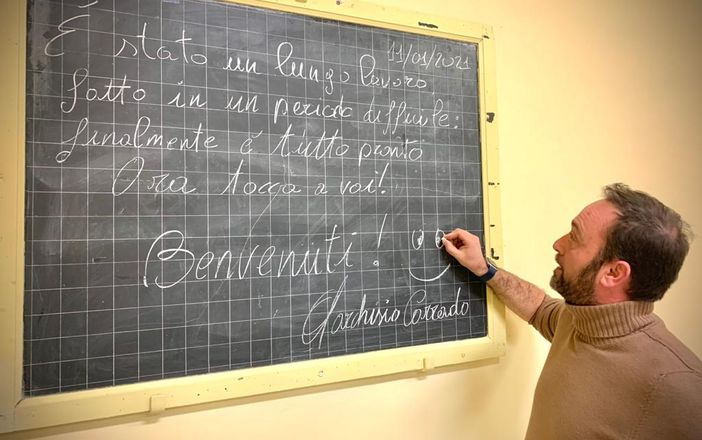 È stato un lungo lavoro, 11/01/2021
fatto in un periodo difficile:
finalmente è tutto pronto
Ora tocca a voi!
Benvenuti!
Corrado